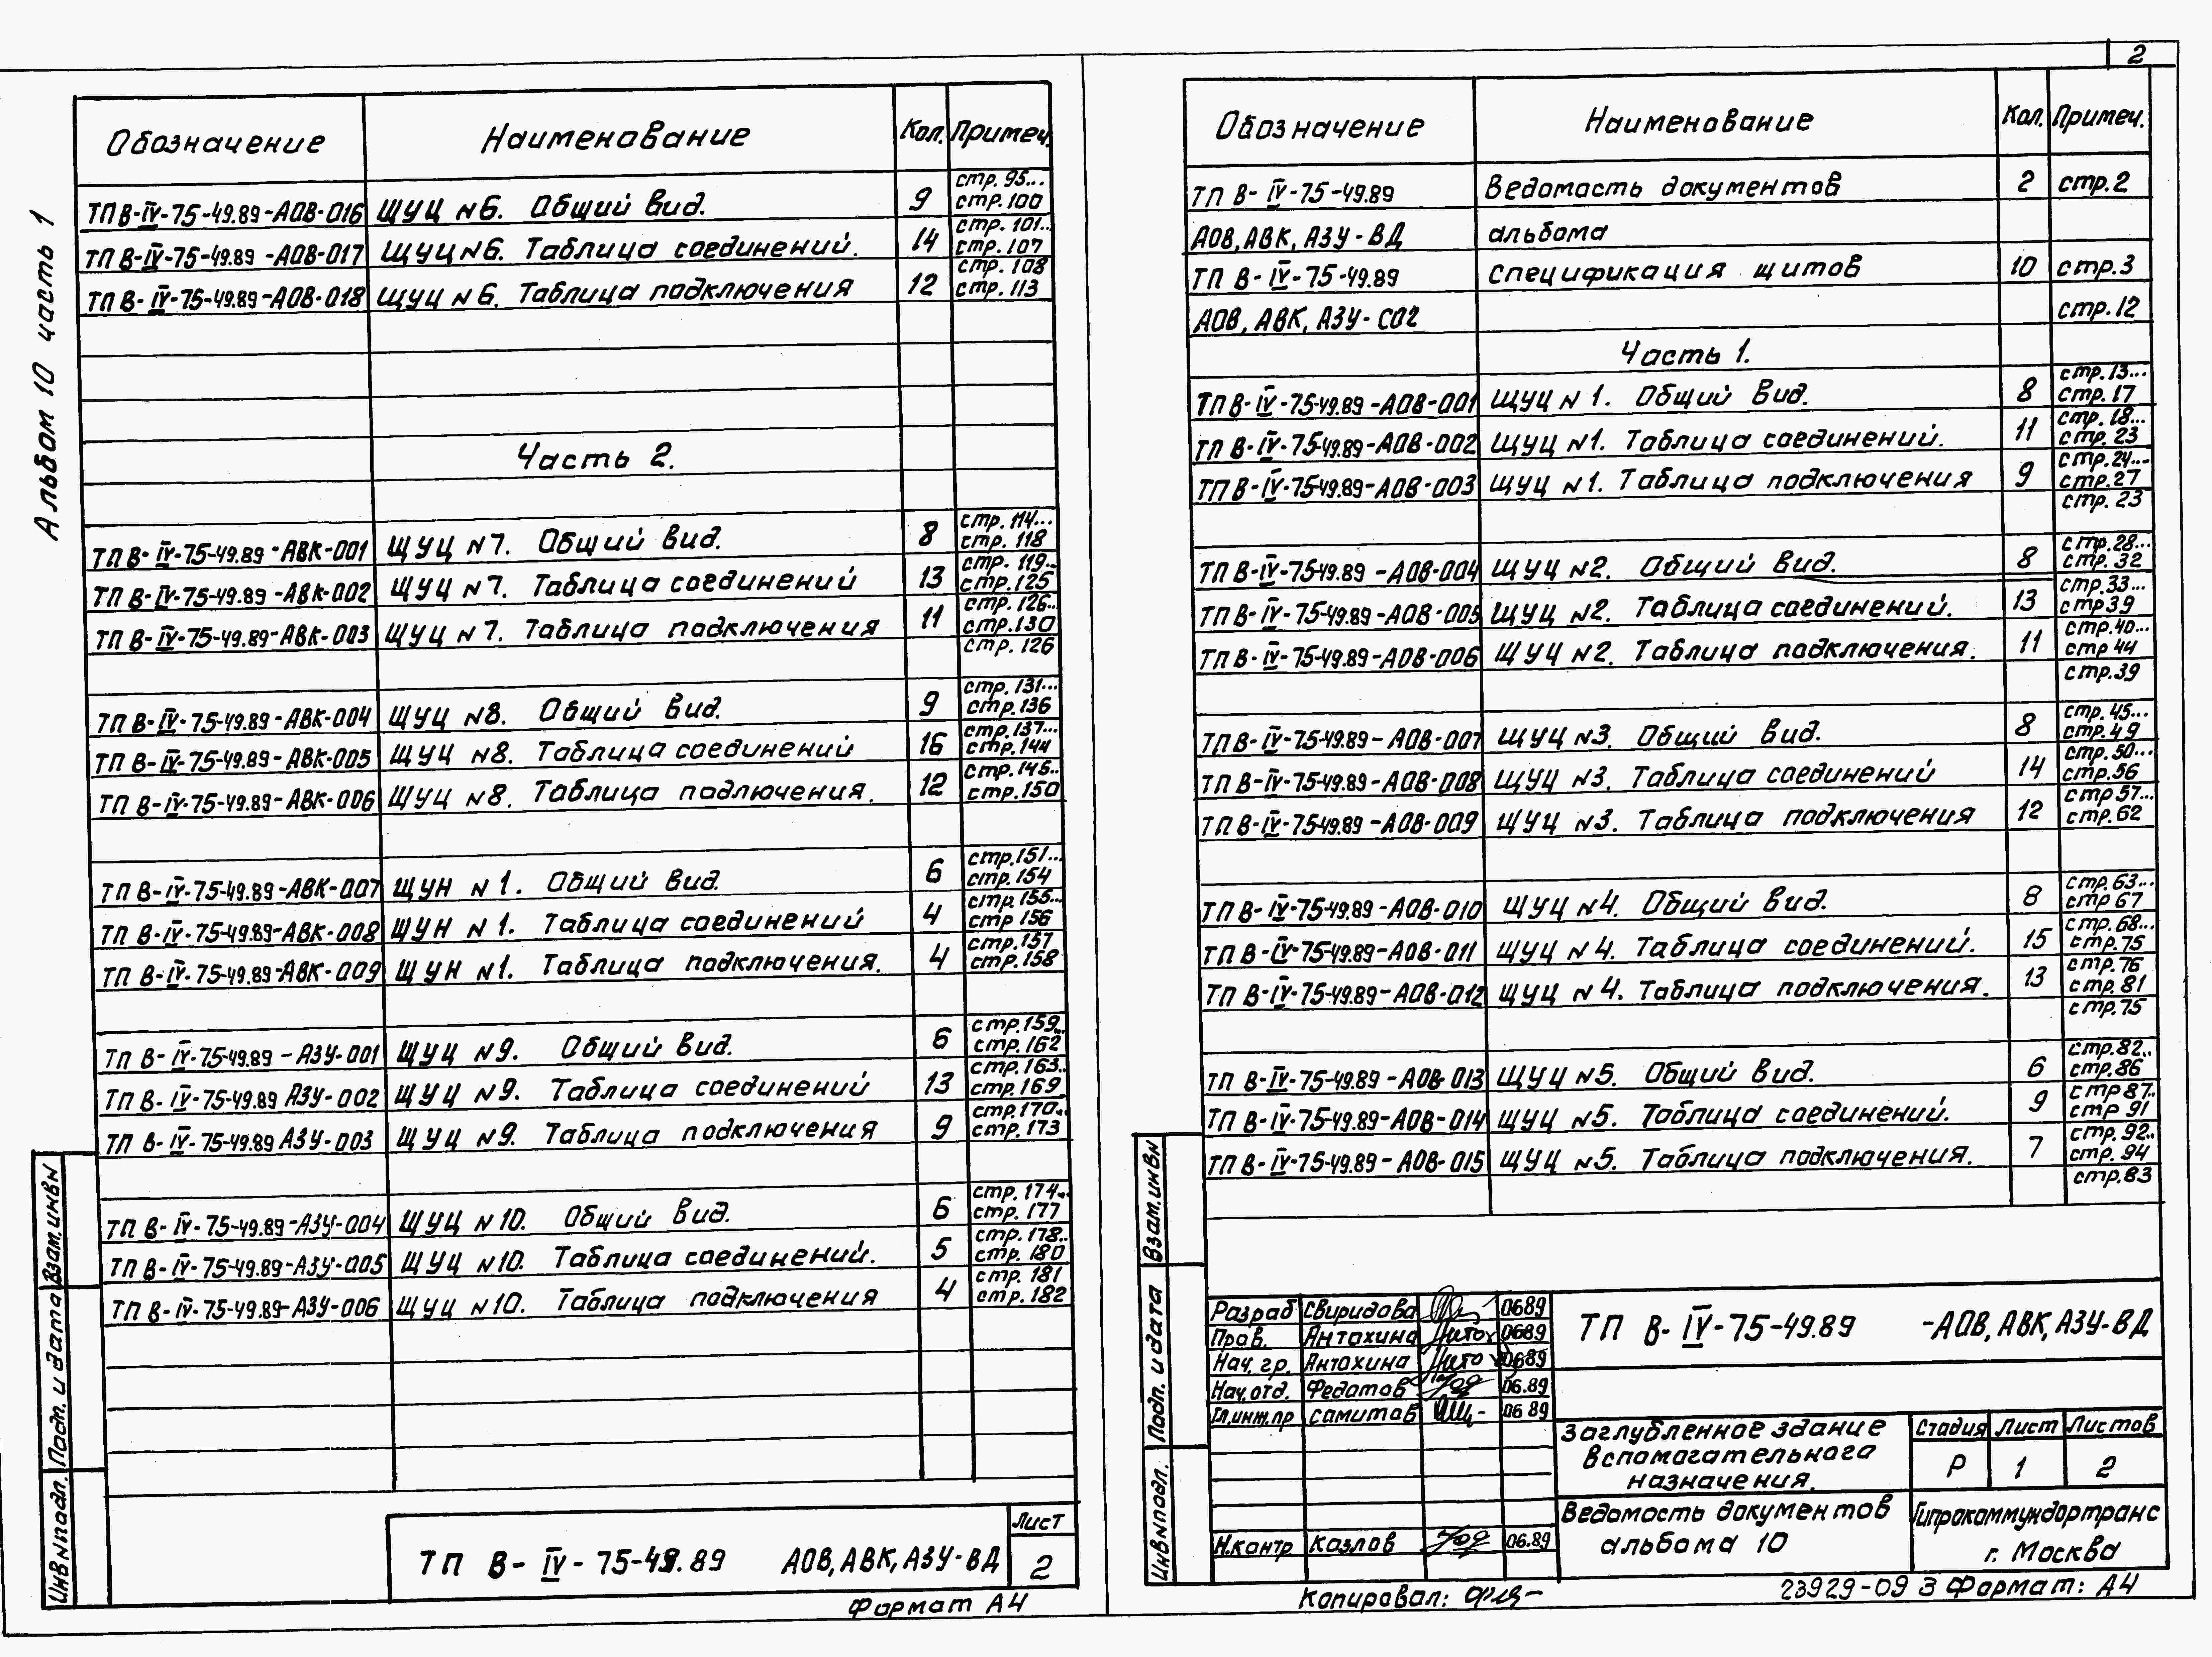 Альбом 10 часть 1
Обозначение Наименование Кол. Примеч.
стр. 95...
ТП В-IV-75-49.89-АОВ-016 ЩУЦ №6. Общий вид. 9 стр. 100
стр. 101...
ТП В-IV-75-49.89-АОВ-017 ЩУЦ №6. Таблица соединений. 14 стр. 107
стр. 108
ТП В-IV-75-49.89-АОВ-018 ЩУЦ №6. Таблица подключения 12 стр. 113
Часть 2.
стр. 114...
ТП В-IV-75-49.89-АВК-001 ЩУЦ №7. Общий вид. 8 стр. 118
стр. 119...
ТП В-IV-75-49.89-АВК-002 ЩУЦ №7. Таблица соединений 13 стр. 125
стр. 126...
ТП В-IV-75-49.89-АВК-003 ЩУЦ №7. Таблица подключения 11 стр. 130
стр. 126
стр. 131...
ТП В-IV-75-49.89-АВК-004 ЩУЦ №8. Общий вид. 9 стр. 136
стр. 137...
ТП В-IV-75-49.89-АВК-005 ЩУЦ №8. Таблица соединений 16 стр. 144
стр. 145...
ТП В-IV-75-49.89-АВК-006 ЩУЦ №8. Таблица подлючения. 12 стр. 150
стр. 151...
ТП В-IV-75-49.89-АВК-007 ЩУН №1. Общий вид. 6 стр. 154
стр. 155...
ТП В-IV-75-49.89-АВК-008 ЩУН №1. Таблица соединений 4 стр 156
стр. 157
ТП В-IV-75-49.89-АВК-009 ЩУН №1. Таблица подключения. 4 стр. 158
стр. 159...
ТП В-IV-75-49.89-АЗУ-001 ЩУЦ №9. Общий вид. 6 стр. 162
стр. 163...
ТП В-IV-75-49.89 АЗУ-002 ЩУЦ №9. Таблица соединений 13 стр. 169
стр. 170...
ТП В-IV-75-49.89 АЗУ-003 ЩУЦ №9. Таблица подключения 9 стр. 173
стр. 174...
ТП В-IV-75-49.89-АЗУ-004 ЩУЦ №10. Общий вид. 6 стр. 177
стр. 178...
ТП В-IV-75-49.89-АЗУ-005 ЩУЦ №10. Таблица соединений. 5 стр. 180
стр. 181
ТП В-IV-75-49.89-АЗУ-006 ЩУЦ №10. Таблица подключения 4 стр. 182
Взам.инв№
Подп. и дата
Инв№подл.
ТП В-IV-75-49.89 АОВ, АВК, АЗУ-ВД
Лист
2
Формат А4
2
Обозначение Наименование Кол. Примеч.
ТП В-IV-75-49.89 Ведомость документов 2 стр. 2
АОВ, АВК, АЗУ-ВД альбома
ТП В-IV-75-49.89 Спецификация щитов 10 стр. 3
АОВ, АВК, АЗУ-СО2 стр. 12
Часть 1.
стр. 13...
ТП В-IV-75-49.89-АОВ-001 ЩУЦ №1. Общий вид. 8 стр. 17
стр. 18...
ТП В-IV-75-49.89-АОВ-002 ЩУЦ №1. Таблица соединений. 11 стр. 23
стр. 24...
ТП В-IV-75-49.89-АОВ-003 ЩУЦ №1. Таблица подключения 9 стр. 27
стр. 23
стр. 28...
ТП В-IV-75-49.89-АОВ-004 ЩУЦ №2. Общий вид. 8 стр. 32
стр. 33...
ТП В-IV-75-49.89-АОВ-005 ЩУЦ №2. Таблица соединений. 13 стр 39
стр. 40...
ТП В-IV-75-49.89-АОВ-006 ЩУЦ №2. Таблица подключения. 11 стр 44
стр. 39
стр. 45...
ТП В-IV-75-49.89-АОВ-007 ЩУЦ №3. Общий вид. 8 стр. 49
стр. 50...
ТП В-IV-75-49.89-АОВ-008 ЩУЦ №3. Таблица соединений 14 стр. 56
стр 57...
ТП В-IV-75-49.89-АОВ-009 ЩУЦ №3. Таблица подключения 12 стр. 62
стр. 63...
ТП В-IV-75-49.89-АОВ-010 ЩУЦ №4. Общий вид. 8 стр 67
стр. 68...
ТП В-IV-75-49.89-АОВ-011 ЩУЦ №4. Таблица соединений. 15 стр. 75
стр. 76
ТП В-IV-75-49.89-АОВ-012 ЩУЦ №4. Таблица подключения. 13 стр. 81
стр. 75
стр. 82...
ТП В-IV-75-49.89-АОВ-013 ЩУЦ №5. Общий вид. 6 стр. 86
стр 87...
ТП В-IV-75-49.89-АОВ-014 ЩУЦ №5. Таблица соединений. 9 стр 91
стр. 92...
ТП В-IV-75-49.89-АОВ-015 ЩУЦ №5. Таблица подключения. 7 стр. 94
стр. 83
Взам.инв№
Подп. и дата
Инв№подл.
Разраб Свиридова 0689
Пров. Антохина 0689
Нач. гр. Антохина 0689
Нач. отд. Федотов 06.89
Гл.инж.пр Самитов 06 89
Н.контр. Козлов 06.89
ТП В-IV-75-49.89 -АОВ, АВК, АЗУ-ВД
Заглубленное здание
вспомогательного
назначения.
Стадия Лист Листов
Р 1 2
Ведомость документов
альбома 10
Гипрокоммундортранс
г. Москва
Копировал: 23929-09 3 Формат: А4